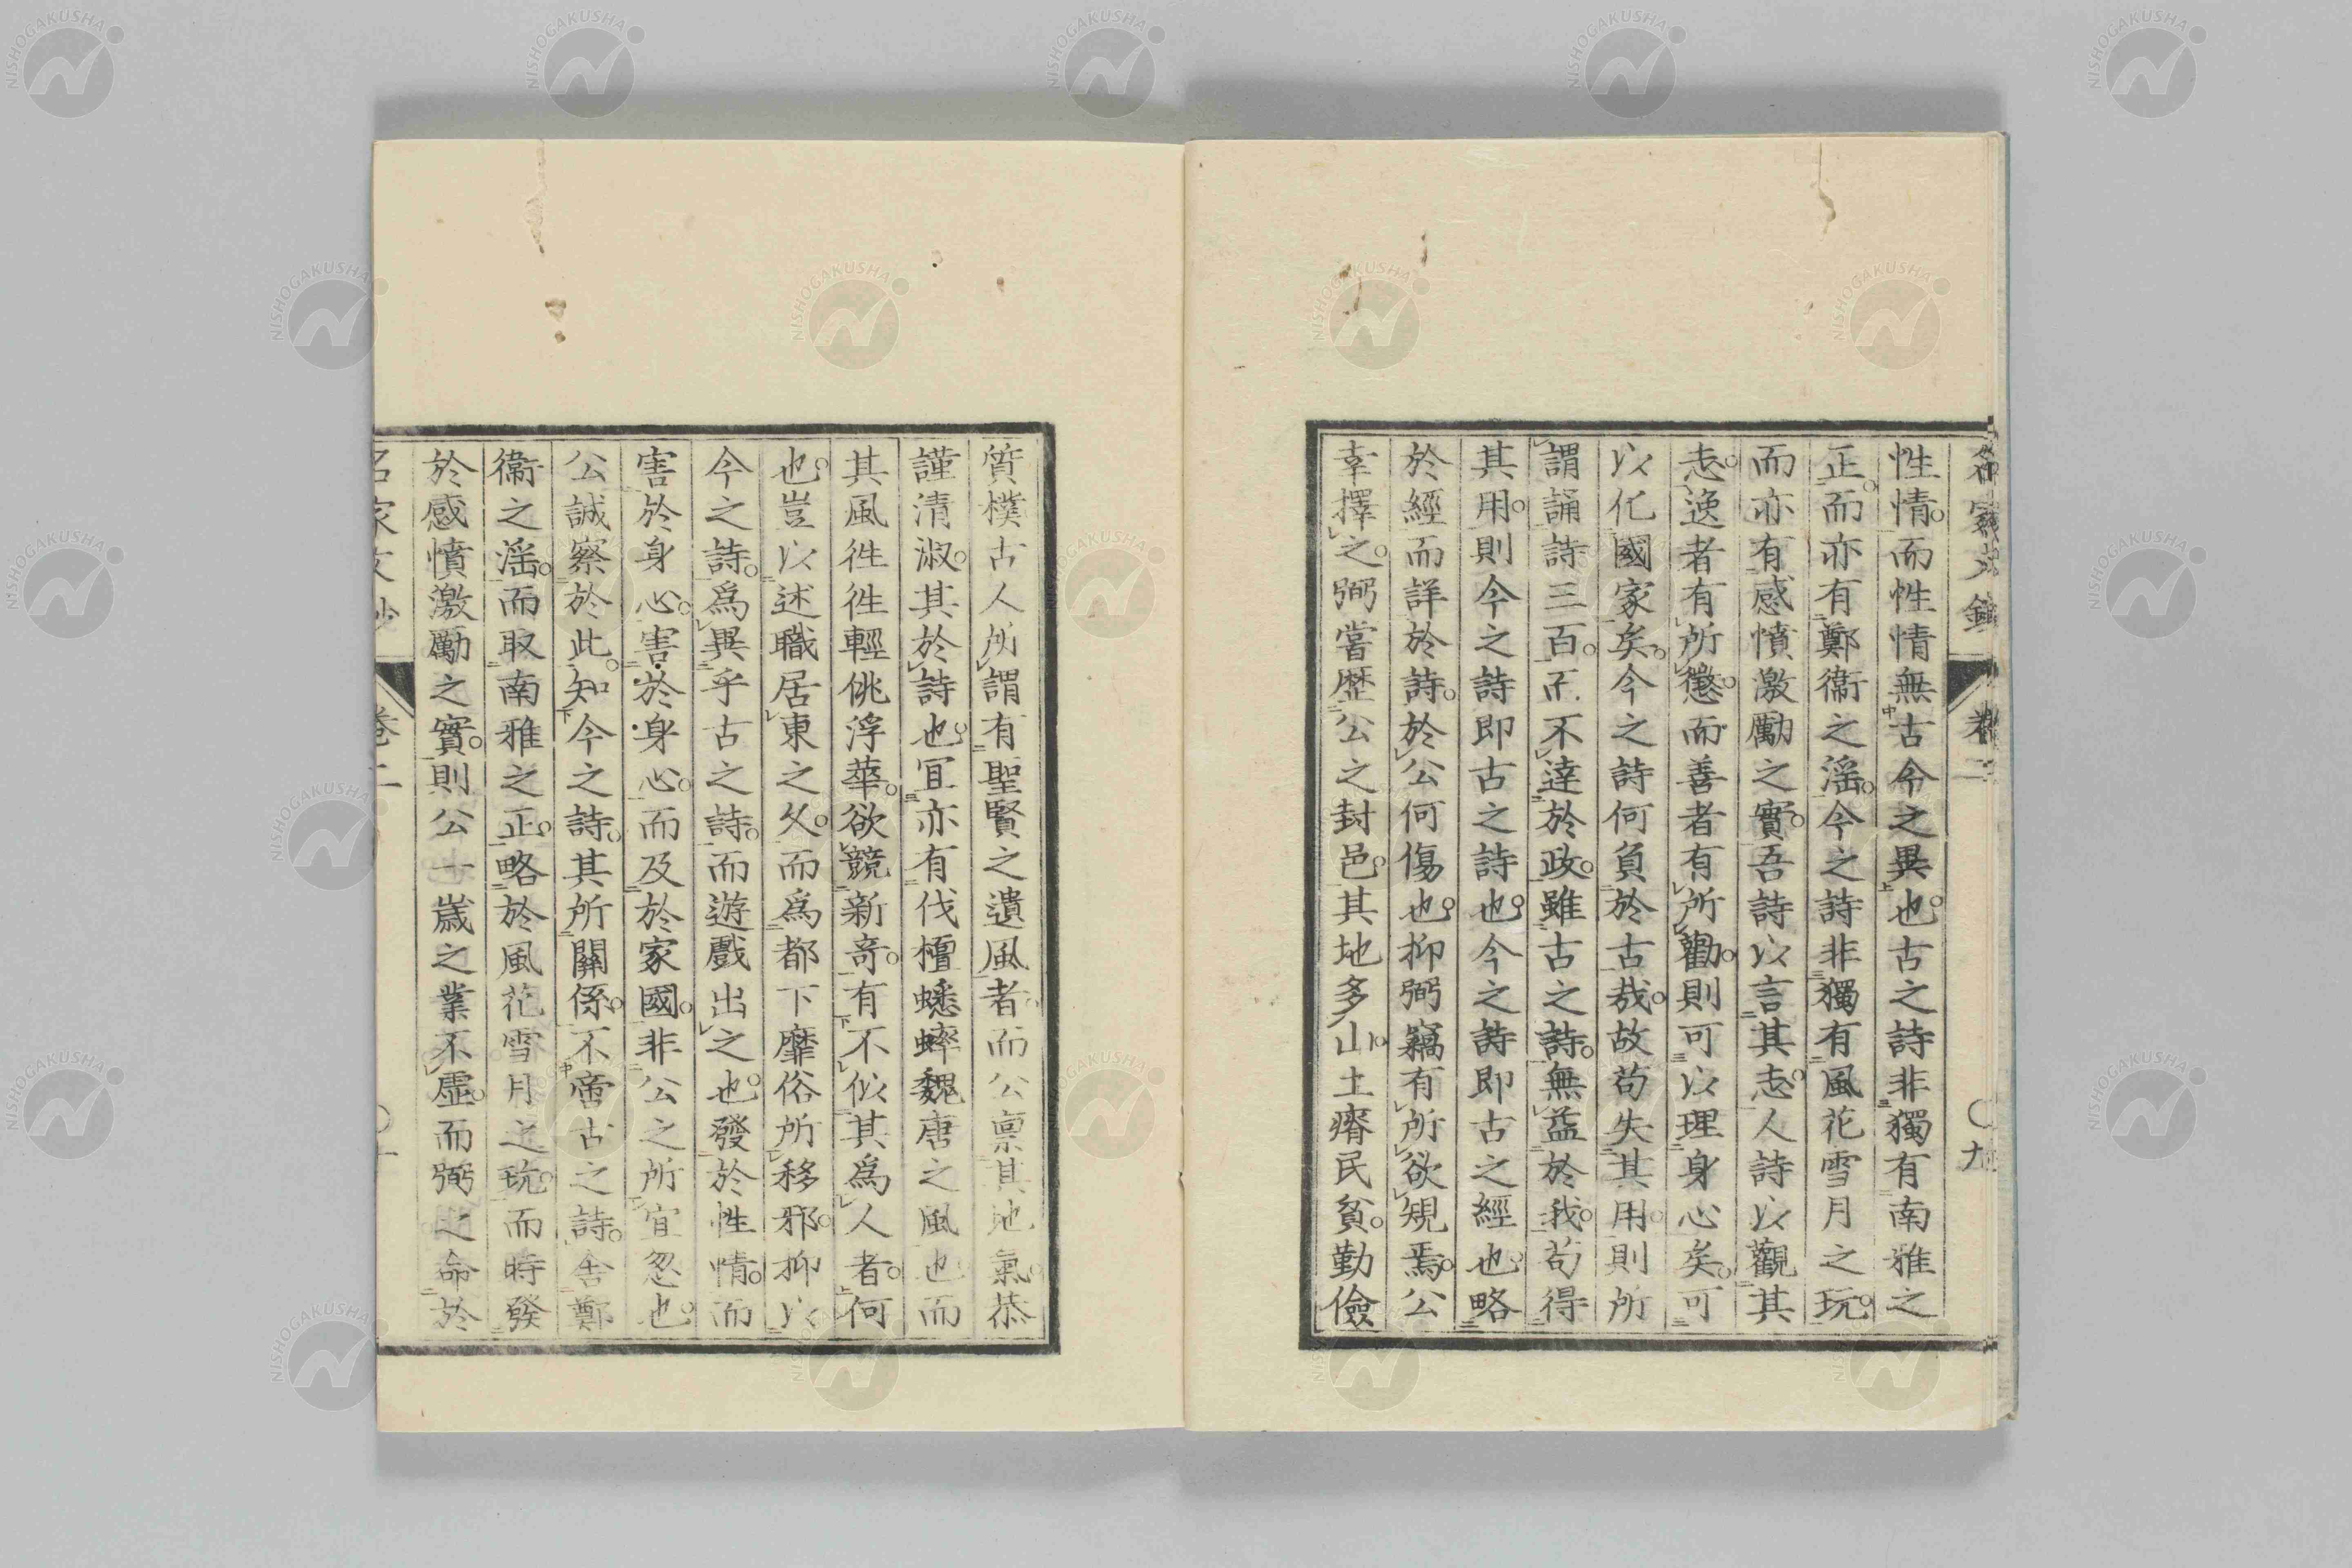 名家文鈔 卷二 〇九
性情。而性情無古今之異也。古之詩非獨有南雅之
正。而亦有鄭衞之淫。今之詩非獨有風花雪月之玩。
而亦有感憤激勵之實。吾詩以言其志。人詩以觀其
志。逸者有所懲。而善者有所勸。則可以理身心矣。可
以化國家矣。今之詩何負於古哉。故苟失其用。則所
謂誦詩三百。而不達於政。雖古之詩。無益於我。苟得
其用。則今之詩即古之詩也。今之詩即古之經也。略
於經而詳於詩。於公何傷也。抑弼竊有所欲規焉。公
幸擇之。弼嘗歷公之封邑。其地多山。土瘠民貧。勤儉
質樸古人所謂有聖賢之遺風者。而公稟其地氣。恭
謹清淑。其於詩也。宜亦有伐檀蟋蟀魏唐之風也而
其風徃徃輕佻浮華。欲競新奇。有不似其爲人者。何
也。豈以述職居東之久。而爲都下靡俗所移邪。抑以
今之詩。爲異乎古之詩。而遊戲出之也。發於性情。而
害於身心。害於身心。而及於家國。非公之所宜忽也。
公誠察於此。知今之詩。其所關係。不啻古之詩。舍鄭
衞之淫。而取南雅之正。略於風花雪月之玩。而時發
於感憤激勵之實。則公一歲之業不虛。而弼之命於
名家文鈔 卷二
NISHOGAKUSHA